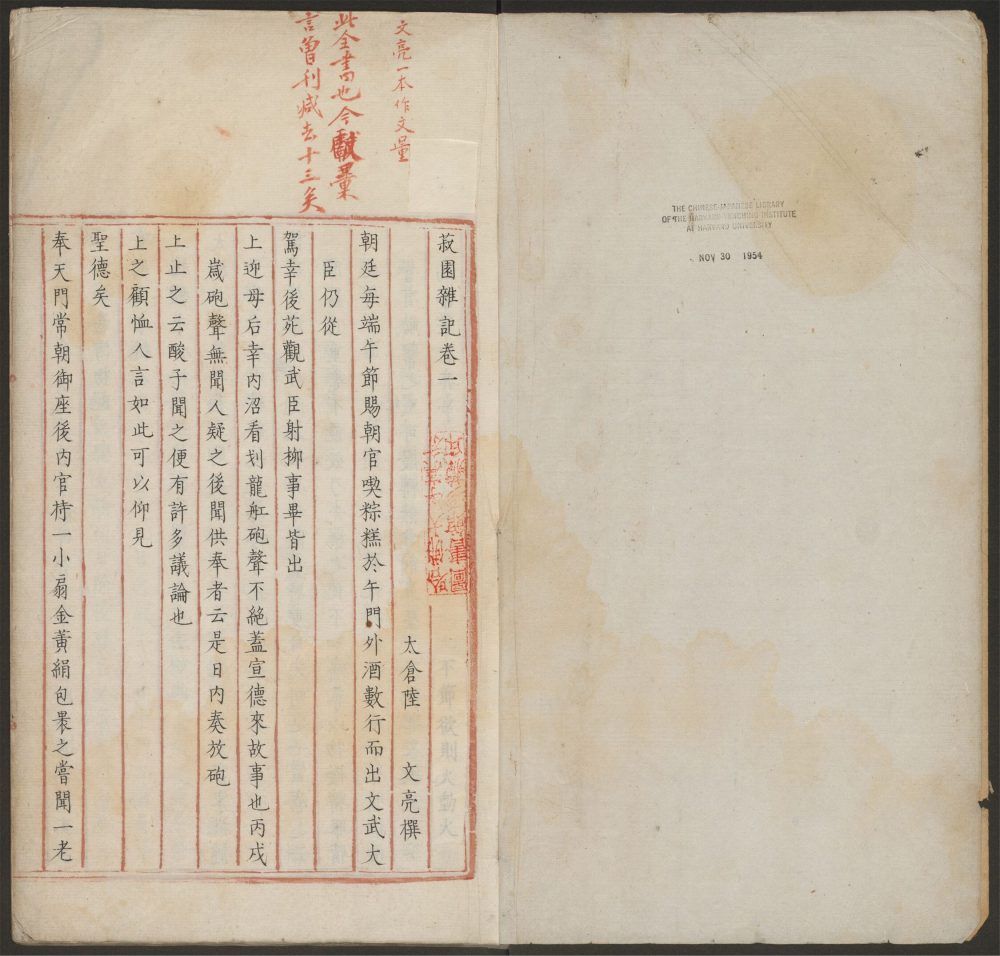 文亮一本作文量
此全書也今獻彙
言曾刊减去十三矣
菽園雜記卷一
太倉陸 文亮撰
朝廷每端午節賜朝官喫粽糕於午門外酒數行而出文武大
臣仍從
駕幸後苑觀武臣射柳事畢皆出
上迎母后幸内沼看划龍舡砲聲不絶盖宣德來故事也丙戌
嵗砲聲無聞人疑之後聞供奉者云是日内奏放砲
上止之云酸子聞之便有許多議論也
上之顧恤人言如此可以仰見
聖德矣
奉天門常朝御座後内官持一小扇金黄絹包褁之嘗聞一老
THE CHINESE-JAPANESE LIBRARY
OF THE HARVARD-YENCHING INSTITUTE
AT HARVARD UNIVERSITY
NOV 30 1954